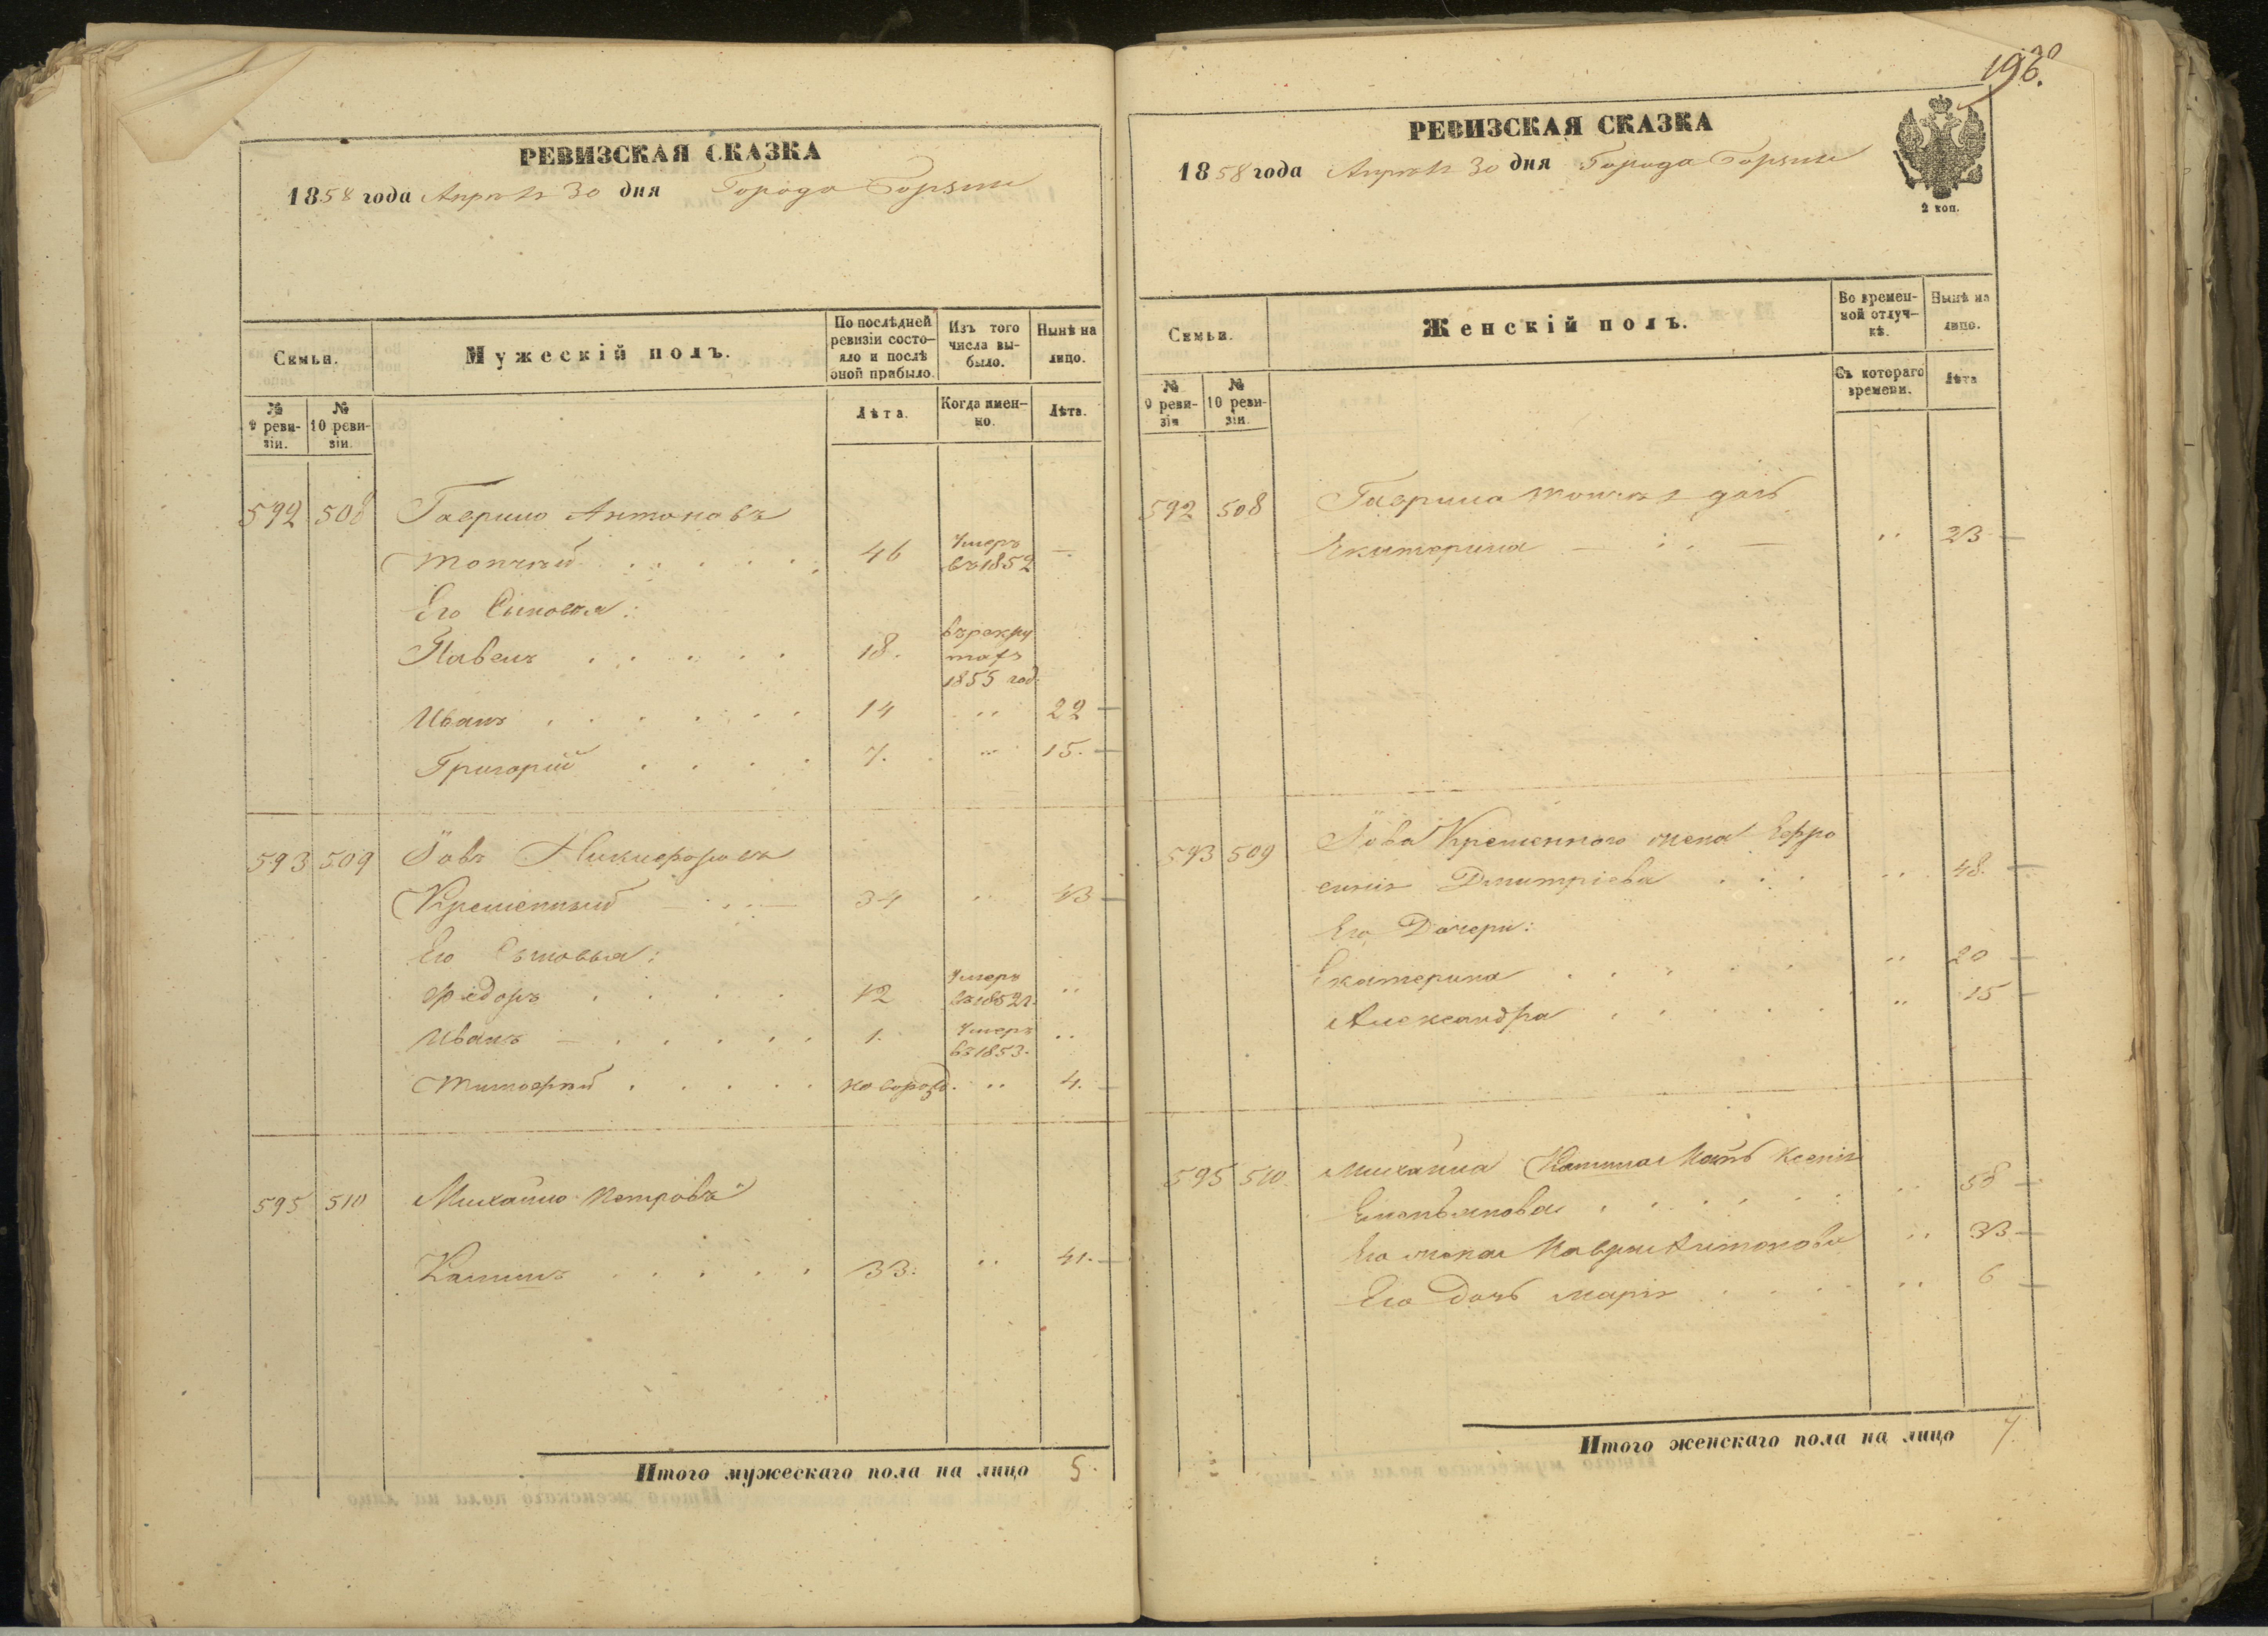 РЕВИЗСКАЯ СКАЗКА
1858 года Апреля 30 дня Города Борзны
Семьи.
Мужескій полъ.
По послѣдней ревизіи состояло и послѣ оной прибыло.
Изъ того числа выбыло.
Нынѣ на лицо.
№ 9 ревизіи.
№ 10 ревизіи.
Лѣта.
Когда именно.
Лѣта.
592 508 Гаврило Антоновъ
46 Умеръ въ 1852 —
Его Сыновья:
Павелъ . . . . . 18. въ рекрутахъ 1855 год.
Иванъ . . . . . . 14 „ 22 —
Григорій . . . . 7. „ 15. —
593 509 Іовъ Никифоровъ
Крешенный 34 „ 43 —
Его Сыновья:
Федоръ . . . . 12 Умеръ въ 1852 г. „
Иванъ — . . . . . 1. Умеръ въ 1853. „
Тимофей . . . . . новорожд. „ 4. —
595 510 Михайло Петровъ
. . . . . 33. „ 41. —
Итого мужескаго пола на лицо 5.
196.
РЕВИЗСКАЯ СКАЗКА
1858 года Апреля 30 дня Города Борзны
2 коп.
Семьи.
Женскій полъ.
Во временной отлучкѣ.
Нынѣ на лицо.
№ 9 ревизіи
№ 10 ревизіи.
Съ котораго времени.
Лѣта
592 508 Гаврила дочь
Екатерина — . . — „ 23 —
593 509 Іова Крешенного жена Ефро
синія Дмитріева . . . „ 48. —
Его Дочери:
Екатерина . . . . . „ 20 —
Александра . . . . . „ 15 —
595 510. Михайла Мать Ксенія
Емельянова . . . . . „ 58 —
Его жена Мавра Антонова „ 33 —
Его дочь Марія . . . . „ 6 —
Итого женскаго пола на лицо 7